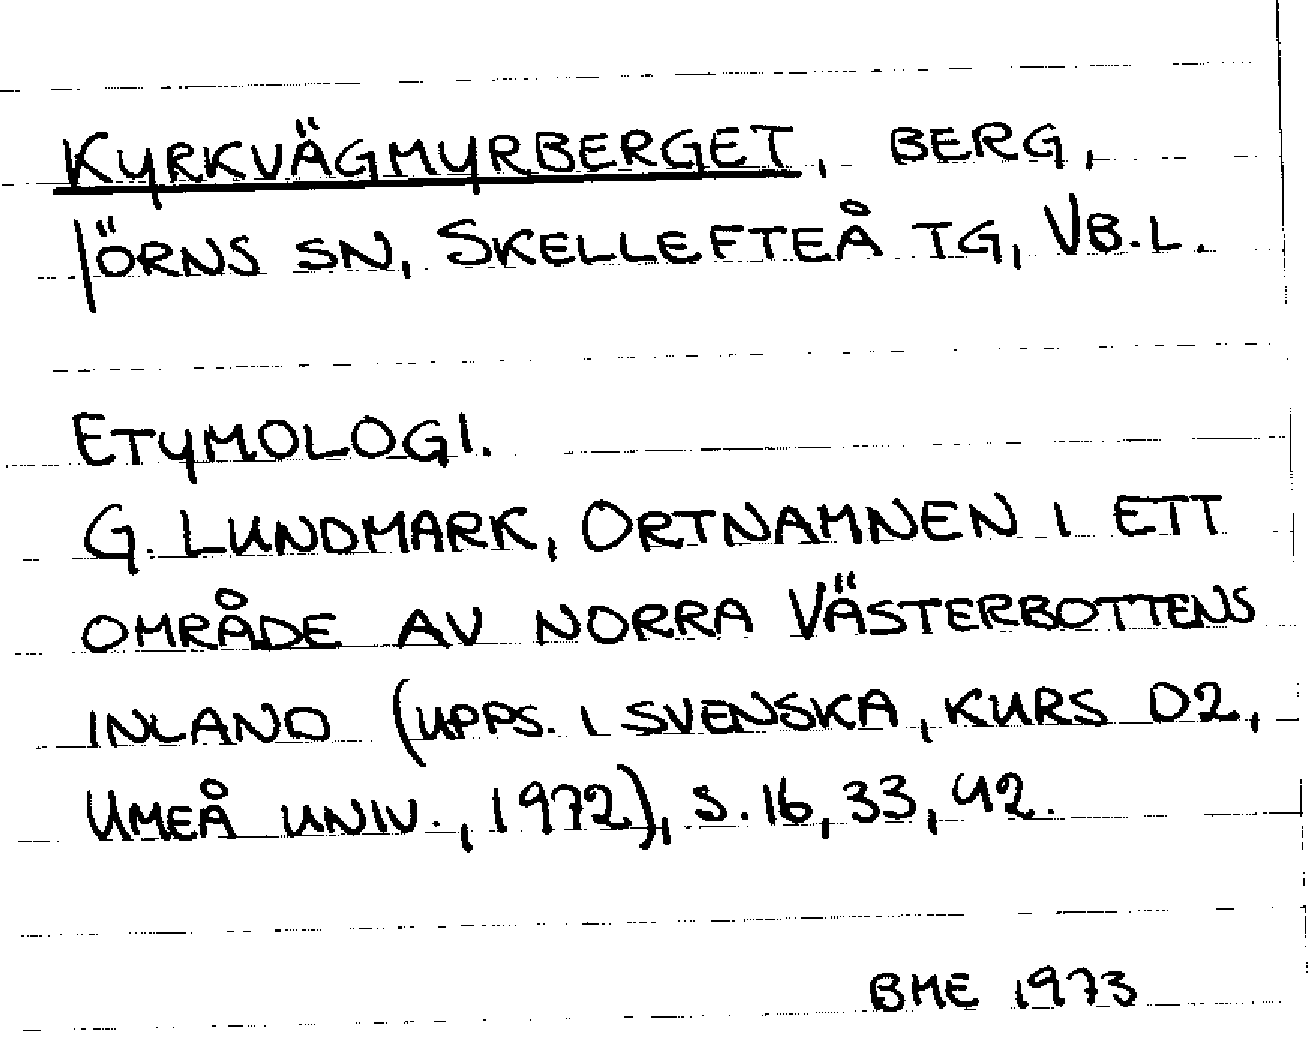 KYRKVÄGMYRBERGET, BERG,
JÖRNS SN, SKELLEFTEÅ TG, VB.L.
ETYMOLOGI.
G. LUNDMARK, ORTNAMNEN I ETT
OMRÅDE AV NORRA VÄSTERBOTTENS
INLAND (UPPS. I SVENSKA, KURS D2,
UMEÅ UNIV., 1972), S. 16, 33, 42.
BME 1973